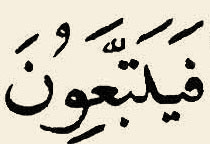 فَيَلَتَّبِعُونَ